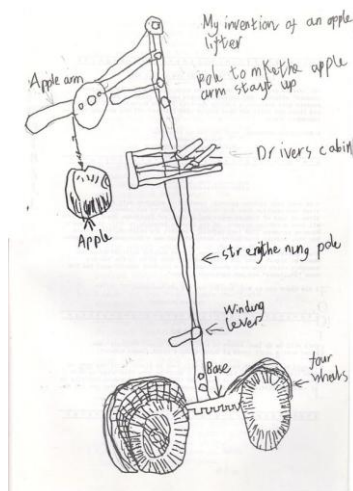 My invention of an apple
lifter
Apple arm
pole to mke the apple
arm stay up
Drivers cabin
Apple
strengthening pole
winding
lever
Base
four
wheels